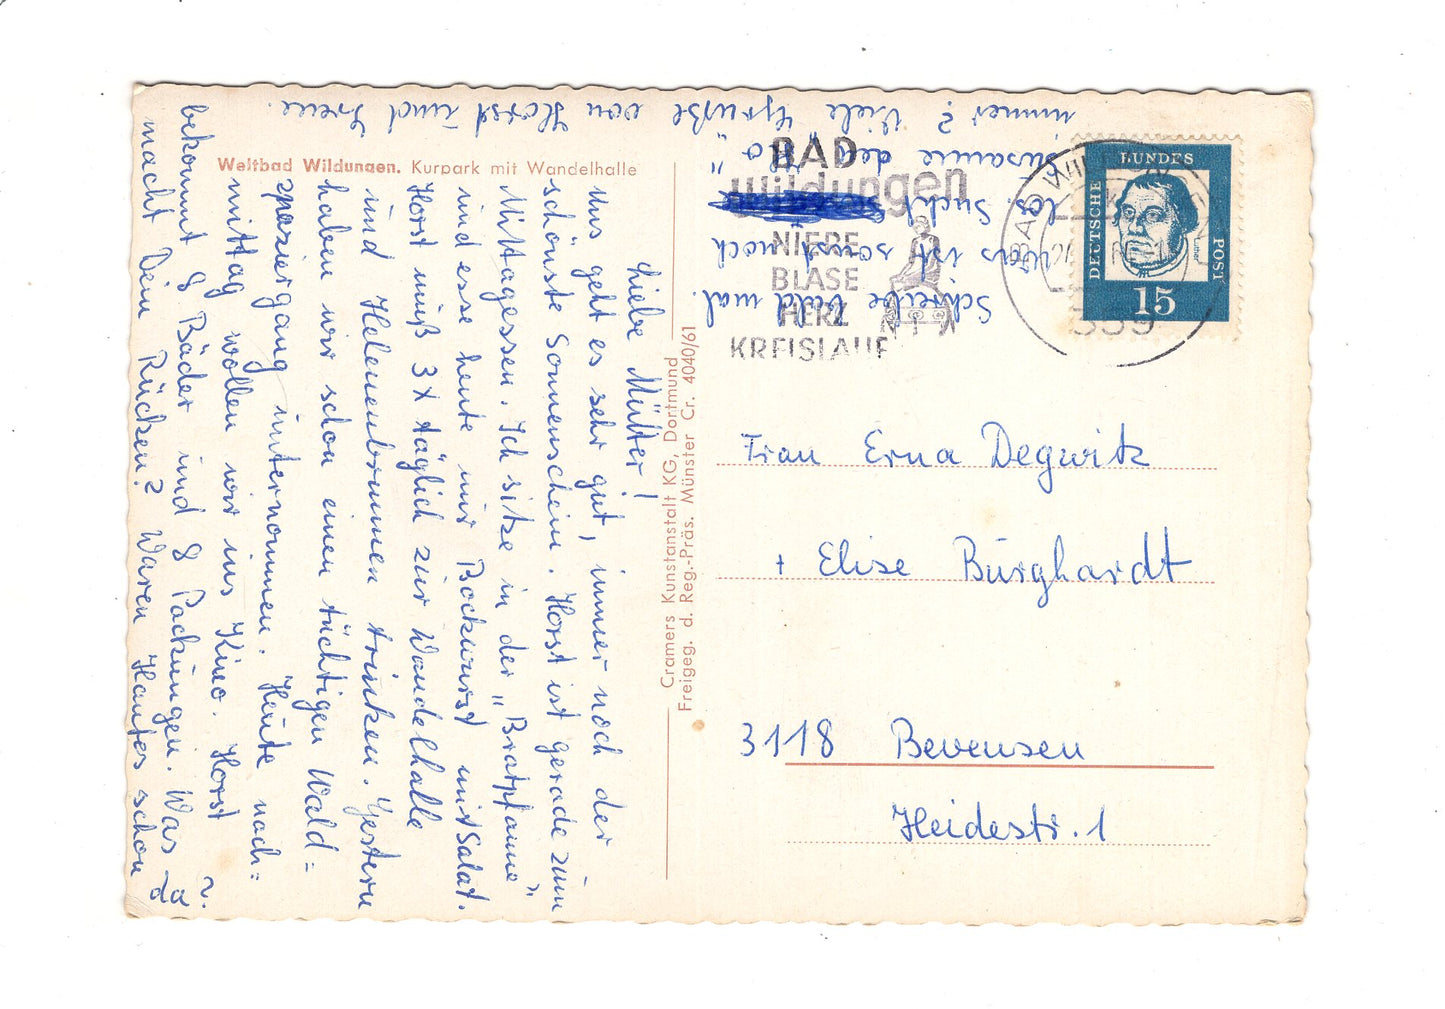 Weltbad Wildungen. Kurpark mit Wandelhalle
Liebe Mutter!
Uns geht es sehr gut, immer noch der
schönste Sonnenschein. Horst ist gerade zum
Mittagessen. Ich sitze in der „Bratpfanne"
und esse heute nur Bockwurst mit Salat.
Horst muß 3x täglich zur Wandelhalle
und Helenenbrunnen trinken. Gestern
haben wir schon einen tüchtigen Wald=
spaziergang unternommen. Heute nach=
mittag wollen wir ins Kino. Horst
bekommt 8 Bäder und 8 Packungen. Was
macht Dein Rücken? Waren Hantes schon da
?
Schreibe bald mal.
Was ist sonst noch
los. Sucht
Susanne den
immer? Viele Grüße von Horst und Irene.
Cramers Kunstanstalt KG, Dortmund
Freigeg. d. Reg.-Präs. Münster Cr. 4040/61
BAD
Wildungen
NIERE
BLASE
HERZ
KREISLAUF
BAD WILDUNGEN
359
DEUTSCHE
BUNDES
POST
15
Frau Erna Degwitz
+ Elise Burghardt
3118 Bevensen
Heidestr. 1